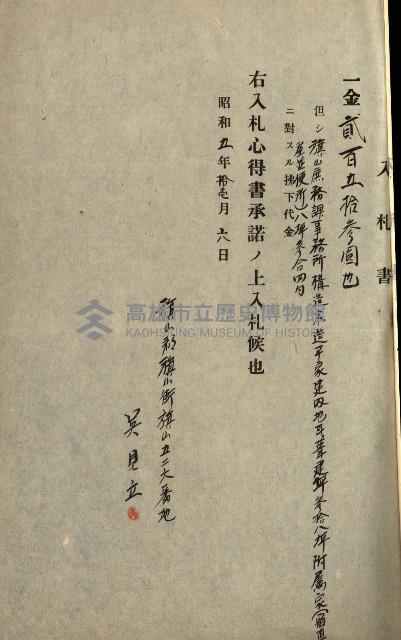 入札書
一金貳百五拾參圓也
但シ旗山庶務課事務所構造木造平家建內地瓦葺建坪參拾八坪附属家(宿直
屋並便所)八坪參合四勺
ニ對スル拂下代金
右入札心得書承諾ノ上入札候也
昭和五年拾壱月六日
旗山郡旗山街旗山五二六番地
吳見立
高雄市立歷史博物館
KAOHSIUNG MUSEUM OF HISTORY